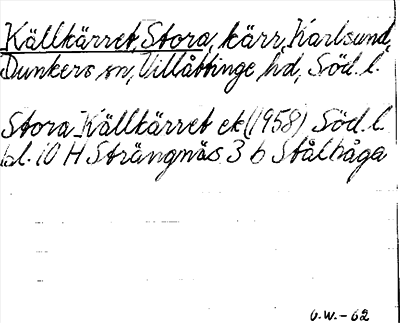 Källkärret, Stora, kärr, Karlsund,
Dunkers sn, Villåttinge hd, Söd. l.
Stora Källkärret ek (1958) Söd. l.
bl. 10 H Strängnäs 3 b Stålhåga
G.W.-62